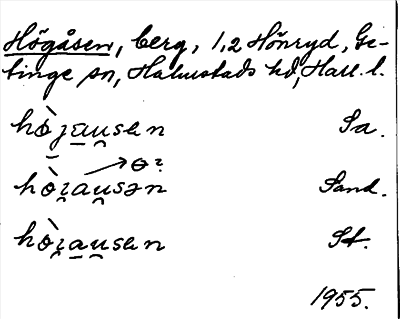 Högåsen, berg, 1,2 Hönryd, Ge-
tinge sn, Halmstads hd, Hall. l.
hò̱ɟa̱u̯sen Sa.
→ɵ?
hò̱ɪ̯au̯sən Sand.
hòɪ̯a̱u̯sen St.
1955.